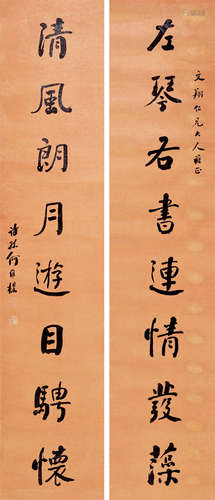 文翔仁兄大人雅正
左琴右書連情發藻
清風朗月遊目騁懷
詩孫何維樸